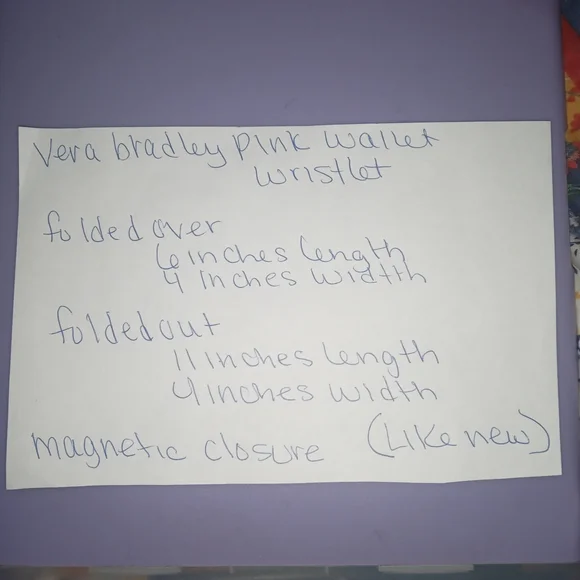 Vera bradley Pink wallet
wristlet
folded over
6 inches length
4 inches width
folded out
11 inches length
4 inches width
magnetic closure (Like new)